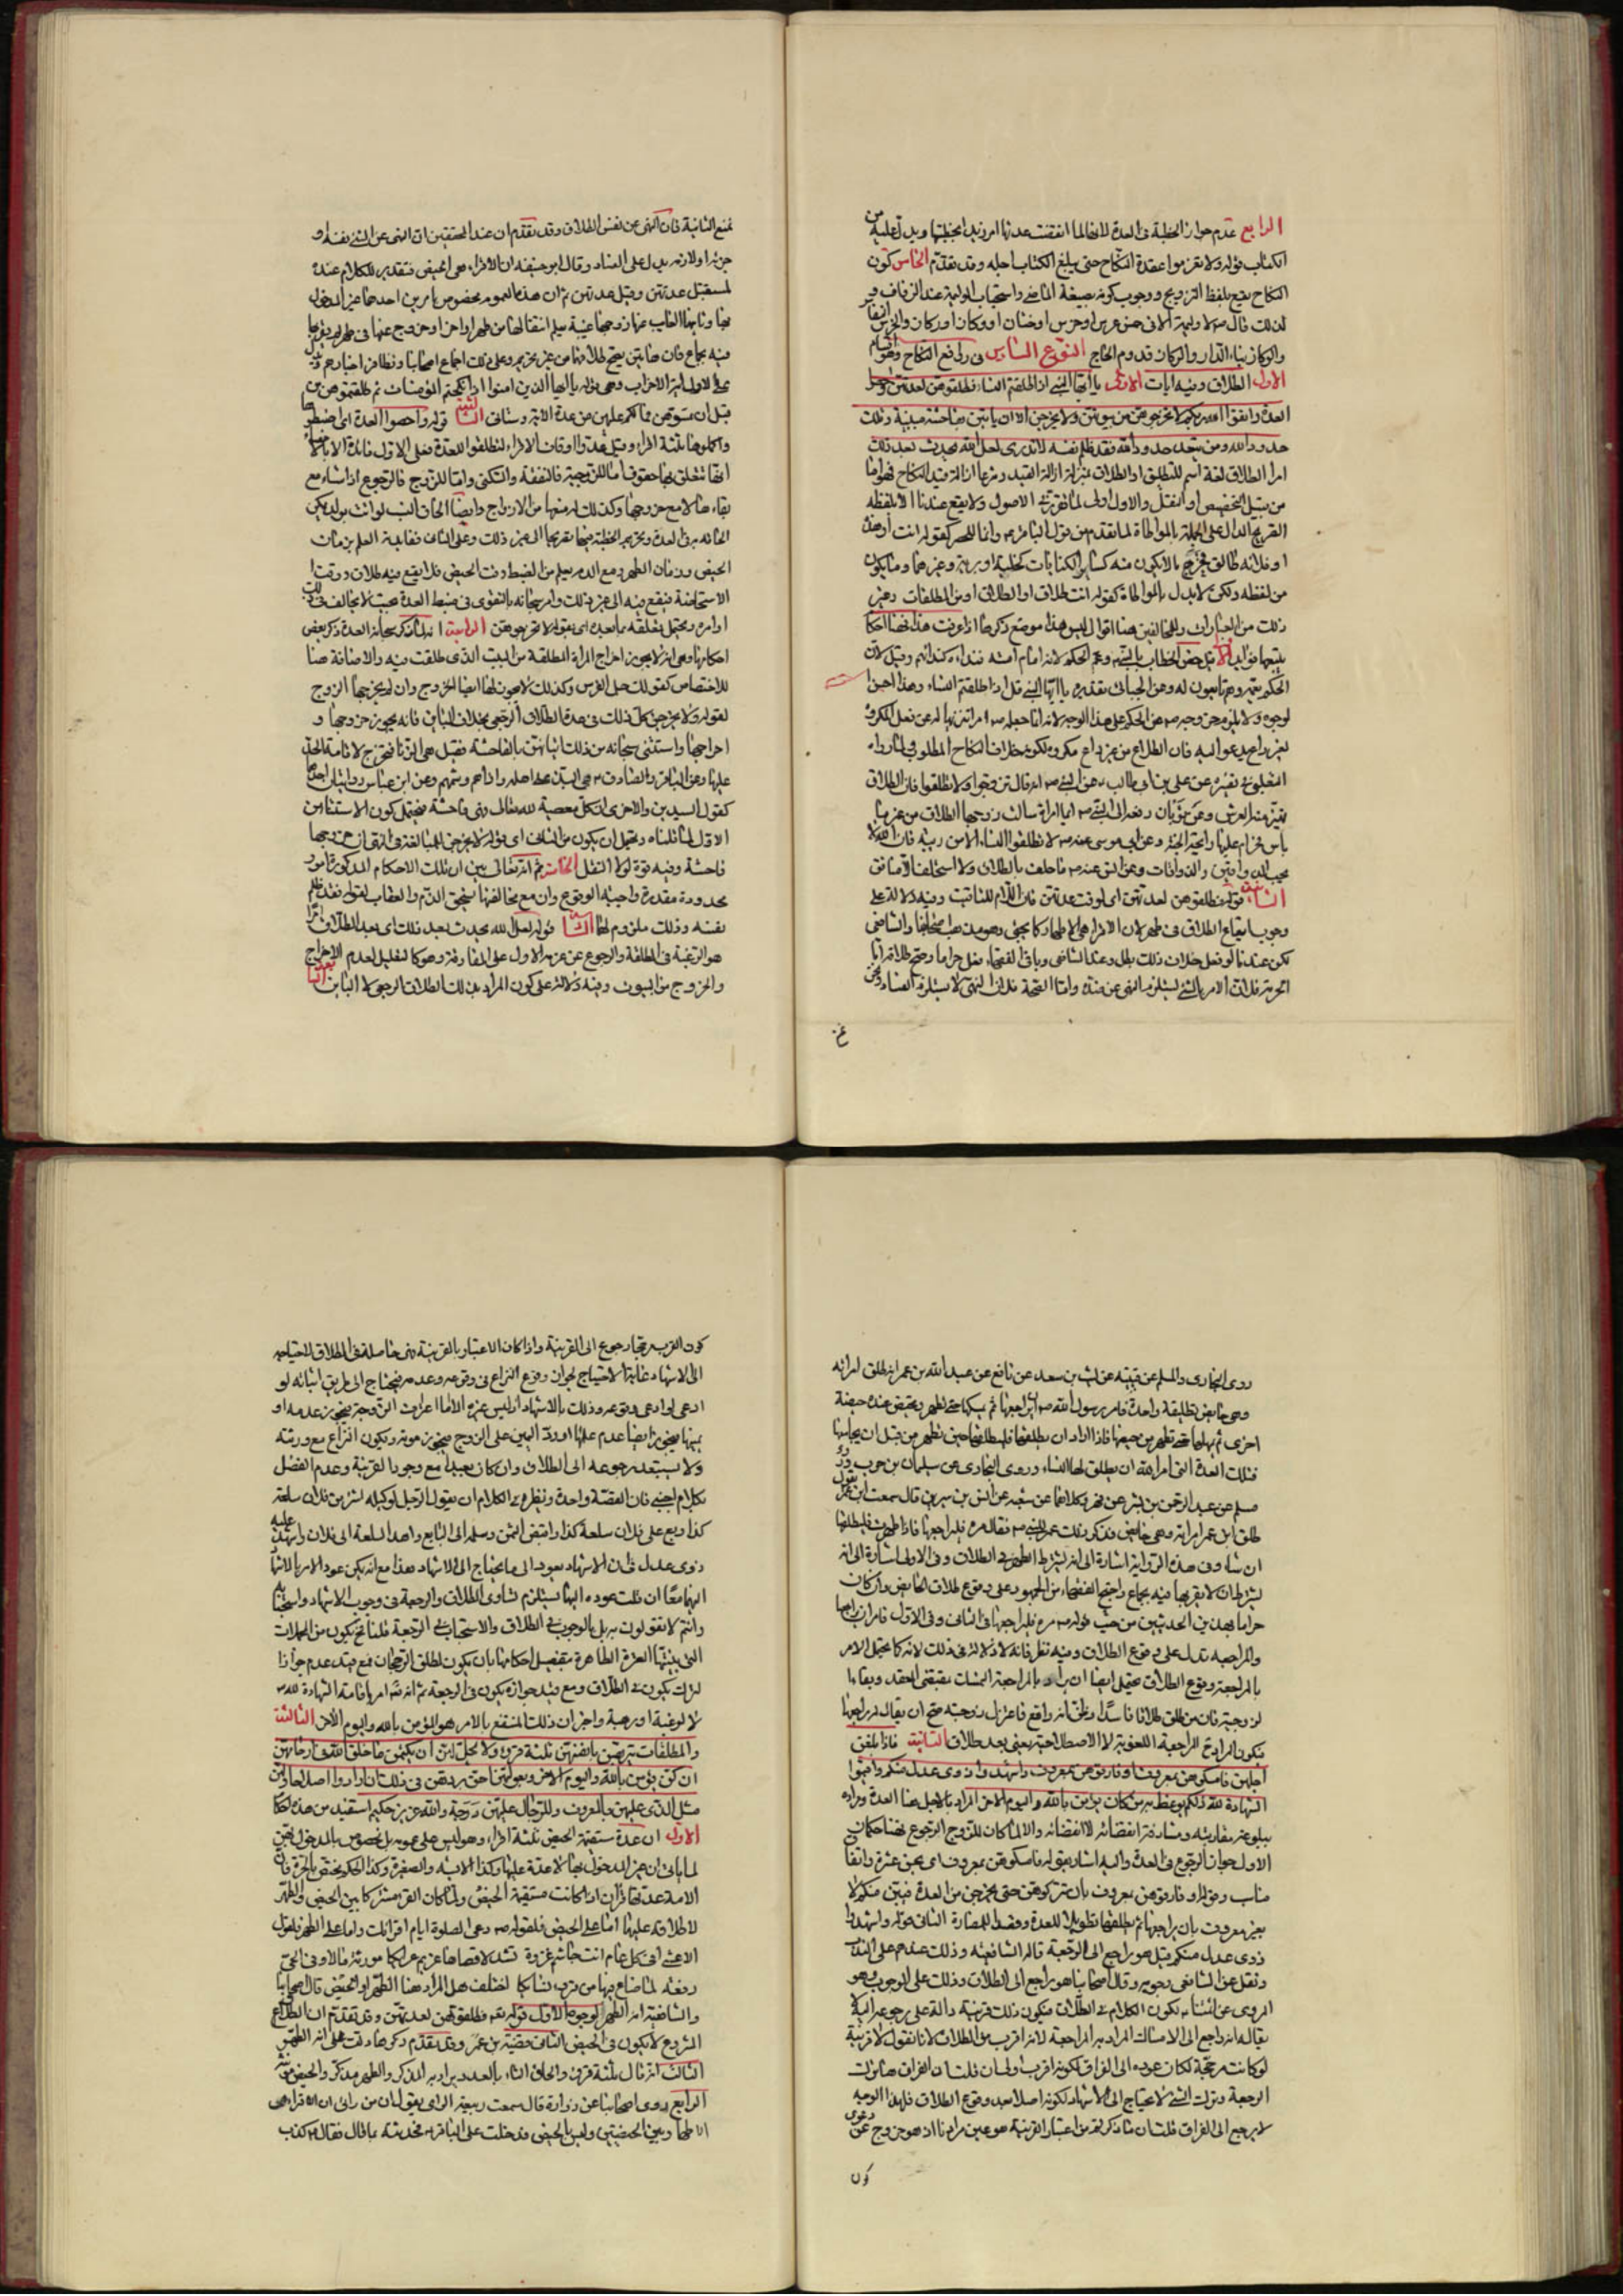 الرابع عدم جواز الخطبة فى العدة لانه لما انقضت عدتها امر زيد بخطبتها ويدل عليه من
الكتاب قوله ولا تعزموا عقدة النكاح حتى يبلغ الكتاب اجله وقد تقدم الخامس كون
النكاح يقع بلفظ التزويج ووجوب كونه بصيغة الماضى واستحباب الوليمة عند الزفاف
لذلك قال لا وليمة الا فى خمس عرس او خرس او عذار او وكار او ركاز والخرس النفاس
والوكار بناء الدار والركاز قدوم الحاج النوع السادس فى روافع النكاح وهو اقسام
الاول الطلاق وفيه ايات الاولى يا ايها النبى اذا طلقتم النساء فطلقوهن لعدتهن واحصوا
العدة واتقوا الله ربكم لا تخرجوهن من بيوتهن ولا يخرجن الا ان ياتين بفاحشة مبينة وتلك
حدود الله ومن يتعد حدود الله فقد ظلم نفسه لا تدرى لعل الله يحدث بعد ذلك
امرا الطلاق لغة اسم للتطليق او الطلاق بمنزلة ازالة القيد وشرعا ازالة قيد النكاح فهو اما
من قبيل التخصيص او النقل والاول اولى لما تقرر فى الاصول ولا يقع عندنا الا بلفظه
الصريح الدال على الجملة بالمواطاة لما تقدم من قول الباقر وانما للحصر كقوله انت او هذه
او فلانة طالق فخرج ما لا يكون منه كسائر الكنايات كخلية او برية وغيرهما وما يكون
من لفظه ولكن لا يدل بالمواطاة كقوله انت طلاق او الطلاق او من المطلقات وغير
ذلك من العبارات وللمخالفين هنا اقوال ليس هذا موضع ذكرها اذا عرفت هذا فهنا احكام
يتبعها فوائد الاول قيل خص الخطاب بالنبى وعم الحكم لانه امام امته فنداءه كندائهم وقيل لان
الحكم يعمه وهم تابعون له وعن الجبائى تقديره يا ايها النبى قل اذا طلقتم النساء وهذا احسن
لوجوه ولا يلزم خروجه عن الحكم على هذا الوجه لانه انما جعله امرا تنزيها له عن فعل المكروه
لغير داع يدعو اليه فان الطلاق من غير داع مكروه لكونه خلاف النكاح المطلوب لما رواه
الثعلبى فى تفسيره عن على بن ابى طالب عن النبى انه قال تزوجوا ولا تطلقوا فان الطلاق
يهتز منه العرش وعن ثوبان رفعه الى النبى ايما امراة سالت زوجها الطلاق من غير ما
باس فحرام عليها رائحة الجنة وعن ابى موسى عنه لا تطلقوا النساء الا من ريبة فان الله لا
يحب الذواقين والذواقات وعن انس عنه ما حلف بالطلاق ولا استحلف الا منافق
الثانى قوله فطلقوهن لعدتهن اى لوقت عدتهن فان اللام للتاقيت وفيه دلالة على
وجوب ايقاع الطلاق فى طهر لان الاقراء هى الاطهار كما يجئ وهو مذهب اصحابنا والشافعى
لكن عندنا لو فعل خلاف ذلك بطل وعند الشافعى وباقى الفقهاء فعل حراما وصح طلاقه اما
الحرمة فلان الامر بالشئ يستلزم النهى عن ضده واما الصحة فلان النهى لا يستلزم الفساد ونحن
نمنع الثانية فان النهى عن نفس الطلاق وقد تقدم ان عند المحققين ان النهى عن الشئ نفسه او
جزئه او لازمه يدل على الفساد وقال ابو حنيفة ان الاقراء هى الحيض فتقدير الكلام عنده
لمستقبل عدتهن وقبل عدتهن ثم ان هذا العموم مخصوص بامرين احدهما غير المدخول
بها وثانيها الغائب عنها زوجها غيبة يعلم انتقالها من طهر الى اخر او خرج عنها فى طهر لم يقربها
فيه بجماع فان هاتين يصح طلاقهما من غير تحريم وعلى ذلك اجماع اصحابنا وتظافر اخبارهم ويدل
على الاول اية الاحزاب وهى قوله يا ايها الذين امنوا اذا نكحتم المؤمنات ثم طلقتموهن من
قبل ان تمسوهن فما لكم عليهن من عدة الاية وستاتى الثالث قوله واحصوا العدة اى اضبطوها
واكملوها ثلثة اقراء وقيل عدوا اوقات الاقراء لتطلقوا للعدة فعلى الاول فائدة الاحصاء
انها تتعلق بها حقوق اما للزوجة فالنفقة والسكنى واما للزوج فالرجوع اذا شاء مع
بقاءها لا مع خروجها وكذلك له منعها من الازواج وايضا الحاق النسب لو اتت بولد يمكن
الحاقه به فى العدة وتحريم الخطبة فيها تصريحا الى غير ذلك وعلى الثانى فقايدة العلم بزمان
الحيض وزمان الطهر ومع الدم يعلم من الضبط وقت الحيض فلا يقع فيه طلاق ووقت
الاستحاضة فيقع فيه الى غير ذلك وامر سبحانه بالتقوى فى ضبط العدة بحيث لا يخالف
اوامره ويحتمل تعلقه بما بعده اى بقوله لا تخرجوهن الرابعة انه لما ذكر سبحانه العدة ذكر بعض
احكامها وهى انه لا يجوز اخراج المراة المطلقة من البيت الذى طلقت فيه والاضافة هنا
للاختصاص كقولك جل الفرس وكذلك لا يجوز لها ايضا الخروج وان لم يخرجها الزوج
لقوله ولا يخرجن كل ذلك فى عدة الطلاق الرجعى بخلاف البائن فانه يجوز خروجها و
اخراجها واستثنى سبحانه من ذلك اتيانهن بالفاحشة فقيل هى الزنا فتخرج لاقامة الحد
عليها وعن الباقر والصادق هى البذاء على اهله واذاهم وشتمهم وعن ابن عباس روايتان احدهما
كقول السيدين والاخرى ان كل معصية لله تعالى فهى فاحشة فيحتمل كون الاستثناء من
الاول لما قلناه ويحتمل ان يكون من الثانى اى قوله لا يخرجن للمبالغة فى النهى ان خروجها
فاحشة وفيه قوة لولا النقل الخامس ثم انه تعالى بين ان تلك الاحكام المذكورة امور
محدودة مقدرة واجبة الوقوع وان مع مخالفتها يستحق الذم والعقاب لقوله فقد ظلم
نفسه وذلك ملزوم لهما السادس قوله لعل الله يحدث بعد ذلك اى بعد الطلاق امرا
هو الرغبة فى المطلقة والرجوع عن عزمه الاول على المفارقة وهو كالتعليل لعدم الاخراج
والخروج من البيوت وفيه دلالة على كون المراد بذلك الطلاق الرجعى لا البائن
روى البخارى والمسلم عن قتيبة عن ليث بن سعد عن نافع عن عبد الله بن عمر انه طلق امراته
وهى حائض تطليقة واحدة فامره رسول الله ان يراجعها ثم يمسكها حتى تطهر وتحيض عنده حيضة
اخرى ثم يمهلها حتى تطهر من حيضها فاذا اراد ان يطلقها فليطلقها حين تطهر من قبل ان يجامعها
فتلك العدة التى امر الله ان يطلق لها النساء وروى البخارى عن سليمان بن حرب وروى
مسلم عن عبد الرحمن بن بشر عن بهز وكلاهما عن شعبة عن انس بن سيرين قال سمعت ابن عمر يقول
طلق ابن عمر امراته وهى حائض فذكر ذلك عمر للنبى فقال مره فليراجعها فاذا طهرت فليطلقها
ان شاء وفى هذه الرواية اشارة الى انه يشترط الطهر فى الطلاق وفى الاولى اشارة الى انه
يشترط ان لا يقربها فيه بجماع واحتج الفقهاء من الجمهور على وقوع طلاق الحائض وان كان
حراما بهذين الحديثين من حيث قوله مره فليراجعها فى الثانى وفى الاول فامره ان يراجعها
والمراجعة تدل على وقوع الطلاق وفيه نظر فانه لا دلالة فى ذلك لانه كما يحتمل الامر
بالمراجعة وقوع الطلاق يحتمل ايضا ان يراد بالمراجعة التمسك بمقتضى العقد وبقاءها
لزوجته فان من طلق طلاقا فاسدا وظن انه واقع فاعتزل زوجته صح ان يقال له راجعها
فيكون المراد فى المراجعة اللغوية لا الاصطلاحية يعنى بعد طلاق الثانية فاذا بلغن
اجلهن فامسكوهن بمعروف او فارقوهن بمعروف واشهدوا ذوى عدل منكم واقيموا
الشهادة لله ذلكم يوعظ به من كان يؤمن بالله واليوم الاخر المراد بالاجل هنا العدة ومراده
ببلوغه مقاربته ومشارفة انقضائه لا انقضائه والا لما كان للزوج الرجوع فهنا حكمان
الاول جواز الرجوع فى العدة واليه اشار بقوله فامسكوهن بمعروف اى بحسن عشرة وانفاق
مناسب وقوله او فارقوهن بمعروف بان تتركوهن حتى يخرجن من العدة فيبن منكم لا
بغير معروف بان يراجعها ثم يطلقها تطويلا للعدة وقصدا للمضارة الثانى قوله واشهدوا
ذوى عدل منكم قيل هو راجع الى الرجعة قاله الشافعية وذلك عندهم على الندب
ونقل عن الشافعى وجوبه وقال اصحابنا هو راجع الى الطلاق وذلك على الوجوب وهو
المروى عن ائمتنا ويكون الكلام فى الطلاق فيكون ذلك قرينة دالة على رجوعه اليه لا
يقال انه راجع الى الامساك المراد به المراجعة لانه اقرب من الطلاق لانا نقول لا قرينة
لو كانت مرجحة لكان عوده الى الفراق لكونه اقرب اولى فان قلت ان الفراق هنا ترك
الرجعة وترك الشئ لا يحتاج الى الاشهاد لكونه اصلا بعد وقوع الطلاق فلهذا الوجه
لا يرجع الى الفراق قلت ان ما ذكرتم من اعتبار القرينة هو عين مرادنا اذ هو خروج عن دعوى
كون
كون القرب مجرد رجوع الى القرينة واذا كان الاعتبار بالقرينة فهى حاصلة فى الطلاق لاحتياجه
الى الاشهاد غاية الاحتياج لجواز وقوع النزاع فى وقوعه وعدمه فيحتاج الى طريق اثباته لو
ادعى وقوعه وذلك بالاشهاد او ليس غيره
ولا يستبعد رجوعه الى الطلاق وان كان بعيدا مع وجود القرينة وعدم الفصل
بكلام اجنبى فان القصة واحدة ونظيره فى الكلام ان يقول الرجل لوكيله اشتر من فلان سلعة
كذا وبع على فلان سلعة كذا واقبض الثمن وسلمه الى البايع واهد السلعة الى فلان واشهد عليه
ذوى عدل فان الاشهاد يعود الى ما يحتاج الى الاشهاد هذا مع انه يمكن عود الامر بالاشهاد
اليهما معا ان قلت عوده اليها يستلزم تساوى الطلاق والرجعة فى وجوب الاشهاد واستحبابه
وانتم لا تقولون به بل بالوجوب فى الطلاق والاستحباب فى الرجعة قلنا يكون من المجملات
التى بينتها العترة الطاهرة بتفصيل احكامها بان يكون لمطلق الرجحان فمع قيد عدم جواز
الترك يكون فى الطلاق ومع قيد جوازه يكون فى الرجعة ثم انه تعالى امر باقامة الشهادة لله
لا لرغبة او رهبة واخبر ان ذلك المنتفع بالامر هو المؤمن بالله واليوم الاخر الثالثة
والمطلقات يتربصن بانفسهن ثلثة قروء ولا يحل لهن ان يكتمن ما خلق الله فى ارحامهن
ان كن يؤمن بالله واليوم الاخر وبعولتهن احق بردهن فى ذلك ان ارادوا اصلاحا ولهن
مثل الذى عليهن بالمعروف وللرجال عليهن درجة والله عزيز حكيم استفيد من هذه احكام
الاول ان عدة مستقيمة الحيض ثلثة اقراء وهو ليس على عمومه بل مخصوص بالمدخول بهن
لما ياتى ان غير المدخول بها لا عدة عليها وكذا الايسة والصغيرة وكذا الحكم مختص بالحرة فان
الامة عدتها قرآن اذا كانت مستقيمة الحيض ولما كان القرء مشتركا بين الحيض والطهر
لاطلاقه عليهما اما على الحيض فلقوله دعى الصلوة ايام اقرائك واما على الطهر فلقول
الاعشى افى كل عام انت جاشم غزوة تشد لاقصاها عزيم عزائكا مورثة مالا وفى الحى
رفعة لما ضاع فيها من قروء نسائكا اختلف هل المراد هنا الطهر او الحيض قال اصحابنا
والشافعية انه الطهر لوجوه الاول قوله تعالى فطلقوهن لعدتهن وقد تقدم ان الطلاق
المشروع لا يكون فى الحيض الثانى قضية بن عمر وقد تقدم ذكرها دلت على انه الطهر
الثالث انه قال ثلثة قروء والحاق التاء بالعدد يراد به المذكر والطهر مذكر والحيض مؤنث
الرابع روى اصحابنا عن زرارة قال سمعت ربيعة الراى يقول ان من رايى ان الاقراء هى
الاطهار بين الحيضتين وليس بالحيض فدخلت على الباقر فحدثته بما قال فقال كذب